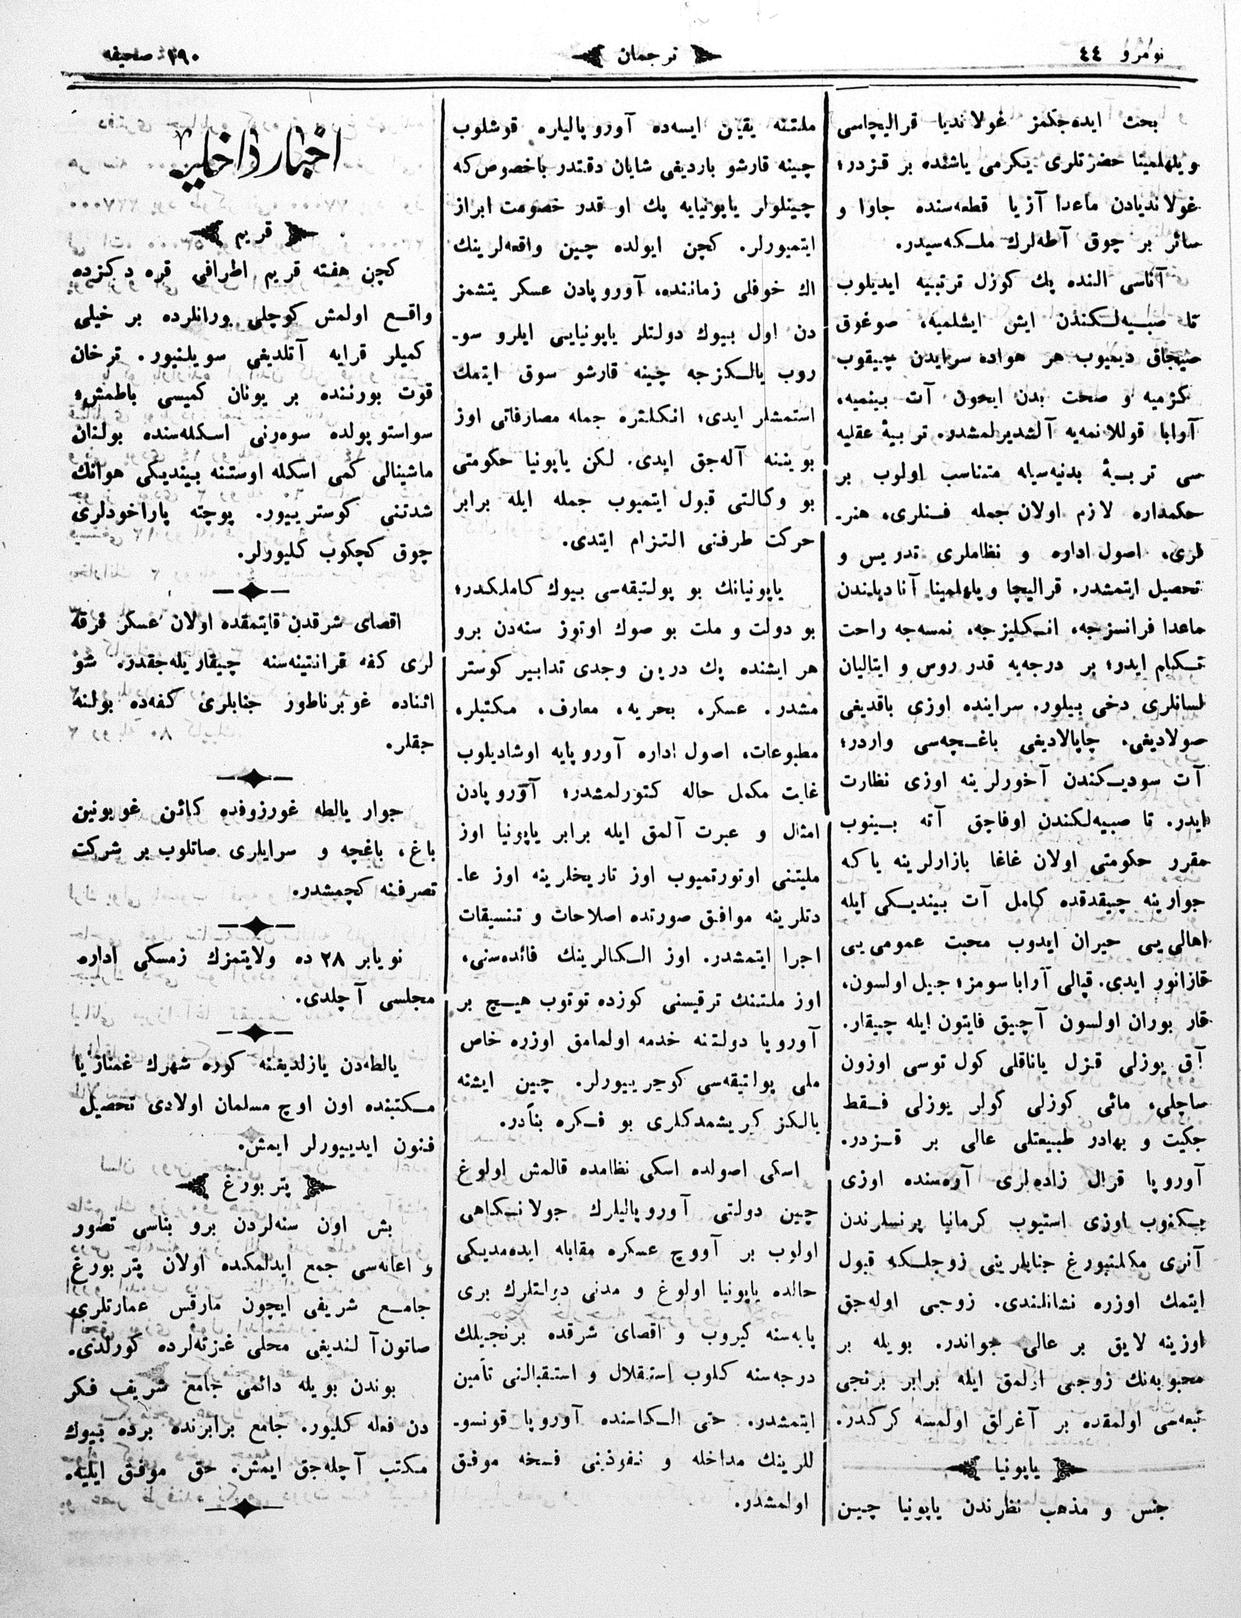 نومرو ٤٤
ترجمان
١٩٠ صحيفه
بحث ايده‌جكمز غولانديا قراليچاسى
ويلهلمينا حضرتلرى يكرمى ياشنده بر قزدر؛
غولانديادن ماعدا آزيا قطعه‌سنده جاوا و
سائر بر چوق آطه‌لرك ملكه‌سيدر.
آناسى النده پك كوزل تربيه ايديلوب
تا صبيه‌لكندن ايش ايشلميه، صوغوق
صيجاق ديميوب هر هواده سرايدن چيقوب
كزميه و صحت بدن ايچون آت بينميه،
آوابا قوللانمه‌يه آلشديرلمشدر. تربيۀ عقليه
سى تربيۀ بدنيه‌سيله متناسب اولوب بر
حكمداره لازم اولان جمله فنلرى، هنر-
لرى، اصول اداره و نظاملرى تدريس و
تحصيل ايتمشدر. قراليچا ويلهلمينا آناديلندن
ماعدا فرانسزجه، انكليزجه، نمسه‌جه راحت
تكلم ايدو؛ بر درجه‌يه قدر روس و ايتاليان
لسانلرى دخى بيلور. سراينده اوزى باقديغى
صولاديغى، چاپالاديغى باغچه‌سى واردر؛
آت سوديكندن آخورلرينه اوزى نظارت
ايدر. تا صبيه‌لكندن اوفاجق آته بينوب
مقرر حكومتى اولان غاغا بازارلرينه ياكه
جوارينه چيقدقده كامل آت بينديكى ايله
اهالى‌يى حيران ايدوب محبت عمومى‌يى
قازانور ايدى. قپالى آرابا سومز؛ جيل اولسون،
قار بوران اولسون آچيق فايتون ايله چيقار.
آق يوزلى قزل ياناقلى كول توسى اوزون
ساچلى، مائى كوزلى كولر يوزلى فقط
جكيت و بهادر طبيعتلى عالى بر قزدر.
آوروپا قرال زاده‌لرى آره‌سنده اوزى
بكنوب اوزى استيوب كرمانيا پرنسلرندن
آنرى مكلنبورغ جنابلرينى زوجلكه قبول
ايتمك اوزره نشانلندى. زوجى اوله‌جق
اوزينه لايق بر عالى جواندر. بويله بر
محبوبه‌نك زوجى اولمق ايله برابر برنجى
تبعه‌سى اولمقده بر آغرلق اولمسه كركدر.
ياپونيا
جنس و مذهب نظرندن ياپونيا چين
ملتنه يقين ايسه‌ده آوروپاليلره قوشلوب
چينه قارشو بارديغى شايان دقتدر باخصوص‌كه
چينلولر ياپونيايه پك او قدر خصومت ابراز
ايتميورلر. كچن ايولده چين واقعه‌لرينك
اك خوفلى زماننده، آوروپادن عسكر يتشمز
دن اول بيوك دولتلر ياپونيايى ايلرو سو-
روب يالكزجه چينه قارشو سوق ايتمك
استمشلر ايدى؛ انكلتره جمله مصارفاتى اوز
بويننه آله‌جق ايدى. لكن ياپونيا حكومتى
بو وكالتى قبول ايتميوب جمله ايله برابر
حركت طرفنى التزام ايتدى.
ياپونيانك بو پولتيقه‌سى بيوك كاملكدر؛
بو دولت و ملت بو صوك اوتوز سنه‌دن برو
هر ايشنده پك درين وجدى تدابير كوستر
مشدر. عسكر، بحريه، معارف، مكتبلر،
مطبوعات، اصول اداره آوروپايه اوشاديلوب
غايت مكمل حاله كتورلمشدر؛ آوروپادن
امثال و عبرت آلمق ايله برابر ياپونيا اوز
مليتنى اونوتميوب اوز تاريخلرينه اوز عا-
دتلرينه موافق صورتده اصلاحات و تنسيقات
اجرا ايتمشدر. اوز الكالرينك فائده‌سنى،
اوز ملتنك ترقيسنى كوزده توتوب هيچ بر
آوروپا دولتنه خدمه اولمامق اوزره خاص
ملى پولتيقه‌سى كوجرييورلر. چين ايشنه
يالكز كريشمدكلرى بو فكره بنأدر.
اسكى اصولده اسكى نظامده قالمش اولوغ
چين دولتى آوروپاليلرك جولانكاهى
اولوب بر آووچ عسكره مقابله ايده‌مديكى
حالده ياپونيا اولوغ و مدنى دولتلرك برى
پايه‌سنه كيروب و اقصاى شرقده برنجيلك
درجه‌سنه كلوب استقلال و استقبالنى تأمين
ايتمشدر. حتى الكاسنده آوروپا قونسو-
للرينك مداخله و نفوذينى فسخه موفق
اولمشدر.
اخبار داخليه
قريم
كچن هفته قريم اطرافى قره دكزده
واقع اولمش كوچلى بورانلرده بر خيلى
كميلر قرايه آتلديغى سويلنيور. ترخان
قوت بورننده بر يونان كميسى باطمش؛
سواستوپولده سوه‌رنى اسكله‌سنده بولنان
ماشينالى كمى اسكله اوستنه بينديكى هوانك
شدتنى كوسترييور. پوچته پاراخودلرى
چوق كچكوب كليورلر.
اقصاى شرقدن قايتمقده اولان عسكر فرقه
لرى كفه قرانتينه‌سنه چيقاريله‌جقدر. شو
اثناده غوبرناطور جنابلرى كفه‌ده بولنه
جقلر.
جوار يالطه غورزوفده كائن غوبونين
باغ، باغچه و سرايلرى صاتلوب بر شركت
تصرفنه كچمشدر.
نويابر ٢٨ ده ولايتمزك زمسكى اداره
مجلسى آچلدى.
يالطه‌دن يازلديغنه كوره شهرك غمنازيا
مكتبنده اون اوچ مسلمان اولادى تحصيل
فنون ايدييورلر ايمش.
پتربورغ
بش اون سنه‌لردن برو بناسى تصور
و اعانه‌سى جمع ايدلمكده اولان پتربورغ
جامع شريفى ايچون مارقس عمارتلرى
صاتون آلنديغى محلى غزته‌لرده كورلدى.
بوندن بويله دائمى جامع شريف فكر
دن فعله كليور. جامع برابرنده برده بيوك
مكتب آچله‌جق ايمش. حق موفق ايليه.